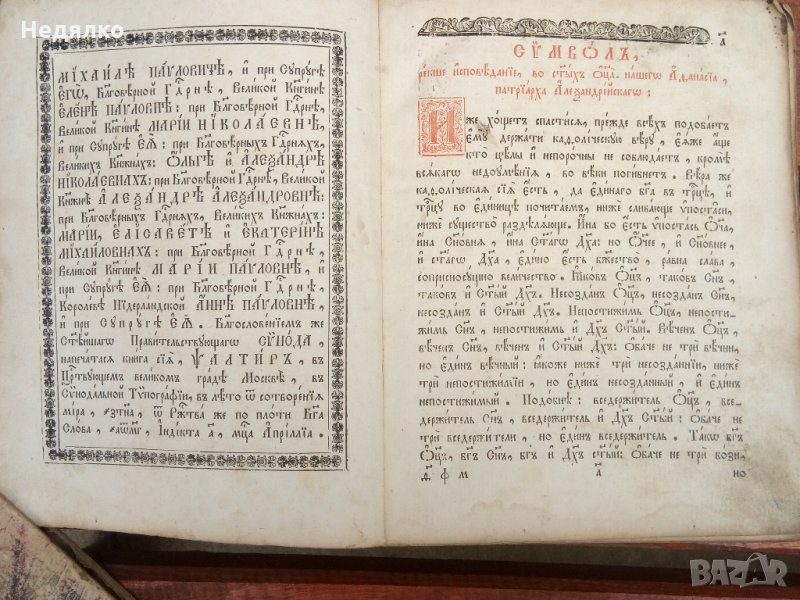 Недялко
МИХАИЛѢ ПАѴЛОВИЧѢ, и҆ при Сꙋпрꙋгѣ
Е҆Гѡ̀, Благовѣ́рной Г҃дрнѣ, Великой Кнѧгинѣ
ЕЛЕНѢ ПАѴЛОВНѢ: при Благовѣ́рной Г҃дрнѣ,
Великой Кнѧгинѣ МАРІИ НІКОЛАЕВНѢ,
и҆ при Сꙋпрꙋгѣ Е҆Ѧ̀: при Благовѣ́рныхъ Г҃дрнѧхъ,
Великихъ Кнѧжнахъ: ОЛЬГѢ и҆ АЛЕѮАНДРѢ
НІКОЛАЕВНАХЪ: при Благовѣ́рной Г҃дрнѣ, Великой
Кнѧжнѣ АЛЕѮАНДРѢ АЛЕѮАНДРОВНѢ:
при Благовѣ́рныхъ Г҃дрнѧхъ, Великихъ Кнѧжнахъ:
МАРІИ, ЕЛІСАВЕТѢ и҆ ЕКАТЕРІНѢ
МІХАИЛОВНАХЪ: при Бл҃говѣ́рной Г҃дрнѣ,
Великой Кнѧгинѣ МАРІИ ПАѴЛОВНѢ, и҆
при Сꙋпрꙋгѣ Е҆Ѧ̀: при Бл҃говѣ́рной Г҃дрнѣ,
Королевѣ Нідерландской АННѢ ПАѴЛОВНѢ,
и҆ при Сꙋпрꙋгѣ Е҆Ѧ̀. Благословенїемъ же
Ст҃ѣйшагѡ Правительствꙋющагѡ СѴНОДА,
напечатасѧ книга сїѧ̀, ѰАЛТИРЬ, въ
Цр҃твꙋющемъ великомъ градѣ Москвѣ, въ
Сѵнодальной Тѵпографїи, въ лѣто ѿ сотворенїѧ
мїра, ҂зтн҃а, ѿ Рж҃тва же по плоти Бг҃а
Слова, ҂аѡм҃г, Індікта а҃, мц҃а Апрїллїа.
а҃
СѴМВОЛЪ,
рекше и҆сповѣданїе, во ст҃ыхъ ѻ҆ц҃а нашегѡ А҆ѳанасїа,
патрїарха А҆леѯандрїйскагѡ:
И҆же хощетъ спастисѧ, прежде всѣхъ подобаетъ
е҆мꙋ̀ держати каѳолїческꙋю вѣрꙋ, е҆ѧже аще
кто̀ цѣлы и҆ непорочны не соблюдаетъ, кромѣ
всѧкагѡ недоꙋмѣнїѧ, во вѣки погибнетъ. Вѣра же
каѳолїческаѧ сїѧ̀ е҆сть, да є҆динагѡ бг҃а въ трⷪ҇цѣ, и҆
трⷪ҇цꙋ во є҆диницѣ почитаемъ, нижѐ сливающе ѵ҆постаси,
нижѐ сꙋщество раздѣлѧюще. И҆на бо е҆сть ѵ҆постась ѻ҆ч҃а,
и҆на сн҃овнѧ, и҆на ст҃агѡ дх҃а: но ѻ҆ч҃ее, и҆ сн҃овнее,
и҆ ст҃агѡ дх҃а, є҆дино е҆сть бж҃ество, равна слава,
соприсносꙋщно величество. Ꙗ҆ковъ ѻ҆ц҃ъ, таковъ сн҃ъ,
таковъ и҆ ст҃ый дх҃ъ. Несозданъ ѻ҆ц҃ъ, несозданъ сн҃ъ,
несозданъ и҆ ст҃ый дх҃ъ. Непостижимь ѻ҆ц҃ъ, непости-
жимь сн҃ъ, непостижимь и҆ дх҃ъ ст҃ый. Вѣченъ ѻ҆ц҃ъ,
вѣченъ сн҃ъ, вѣченъ и҆ ст҃ый дх҃ъ: ѻ҆баче не трѝ вѣчни,
но є҆динъ вѣчный: ꙗ҆коже нижѐ трѝ несозданнїи,
нижѐ трѝ непостижимїи, но є҆динъ несозданный, и҆ є҆динъ
непостижимый. Подобнѣ: вседержитель ѻ҆ц҃ъ, все-
держитель сн҃ъ, вседержитель и҆ дх҃ъ ст҃ый: ѻ҆баче не
трѝ вседержители, но є҆динъ вседержитель. Такѡ бг҃ъ
ѻ҆ц҃ъ, бг҃ъ сн҃ъ, бг҃ъ и҆ дх҃ъ ст҃ый: ѻ҆баче не трѝ бози,
д ф м а҃ но
BAZAR